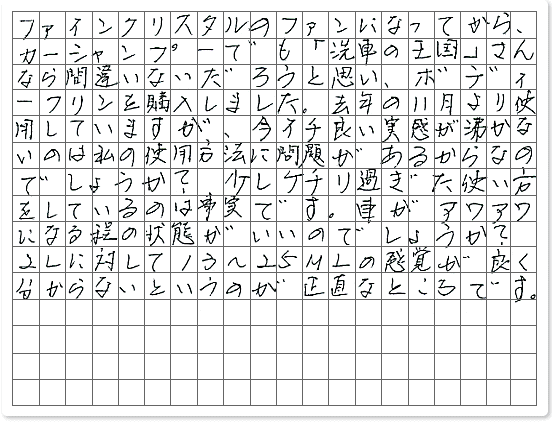 ファインクリスタルのファンになってから、
カーシャンプーでも「洗車の王国」さん
なら間違いないだろうと思い、ボディ
ークリンを購入しました。去年の11月より使
用していますが、今イチ良い実感が沸かな
いのは私の使用方法に問題があるからなの
でしょうか?　少しケチり過ぎた使い方
をしているのは事実です。車がアワアワ
になる程の状態がいいのでしょうか?
2Lに対して15〜25MLの感覚が良く
分からないというのが正直なところです。